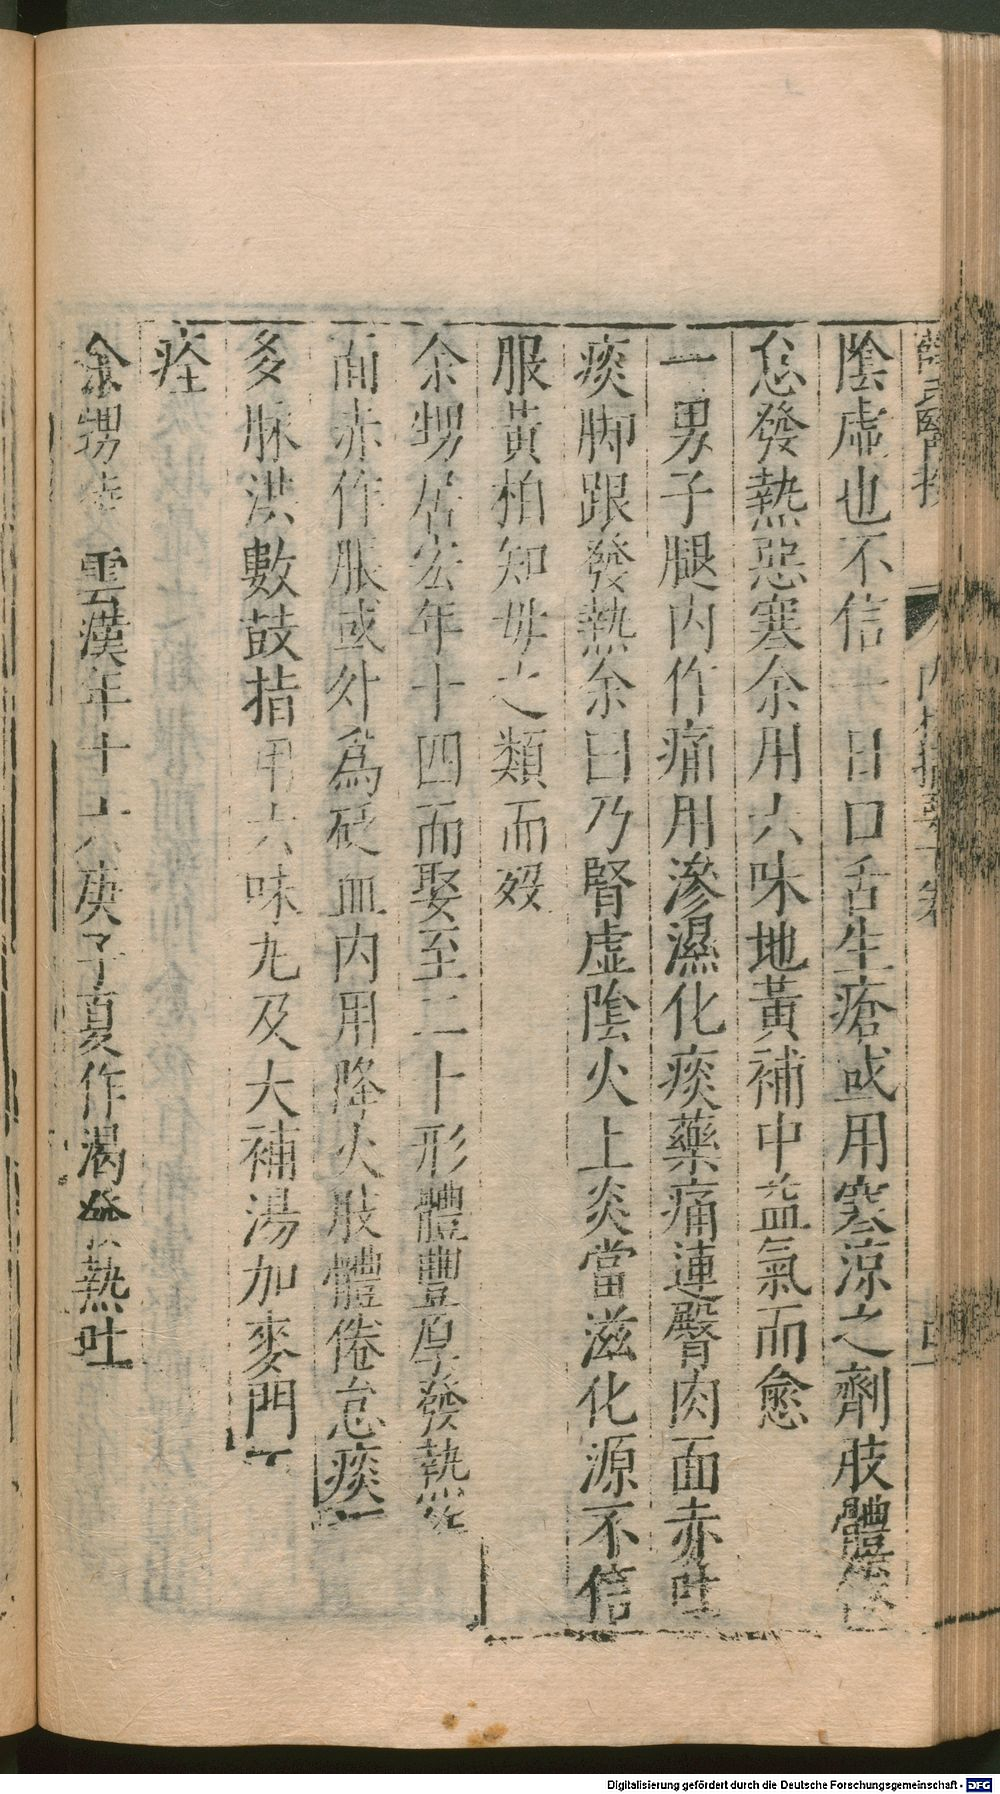 薛氏醫按 內科摘要下卷
陰虛也不信一日口舌生瘡或用寒涼之劑肢體倦
怠發熱惡寒余用六味地黃補中益氣而愈
一男子腿內作痛用滲濕化痰藥痛連臀肉面赤吐
痰脚跟發熱余曰乃腎虛陰火上炎當滋化源不信
服黃柏知母之類而歿
余甥居宏年十四而娶至二十形體豐厚發熱
面赤作脹或外為砭血內用降火肢體倦怠痰
多脉洪數鼓指用六味丸及大補湯加麥門
痊
余甥 雲漢年十六庚子夏作渴發熱吐
Digitalisierung gefördert durch die Deutsche Forschungsgemeinschaft - DFG